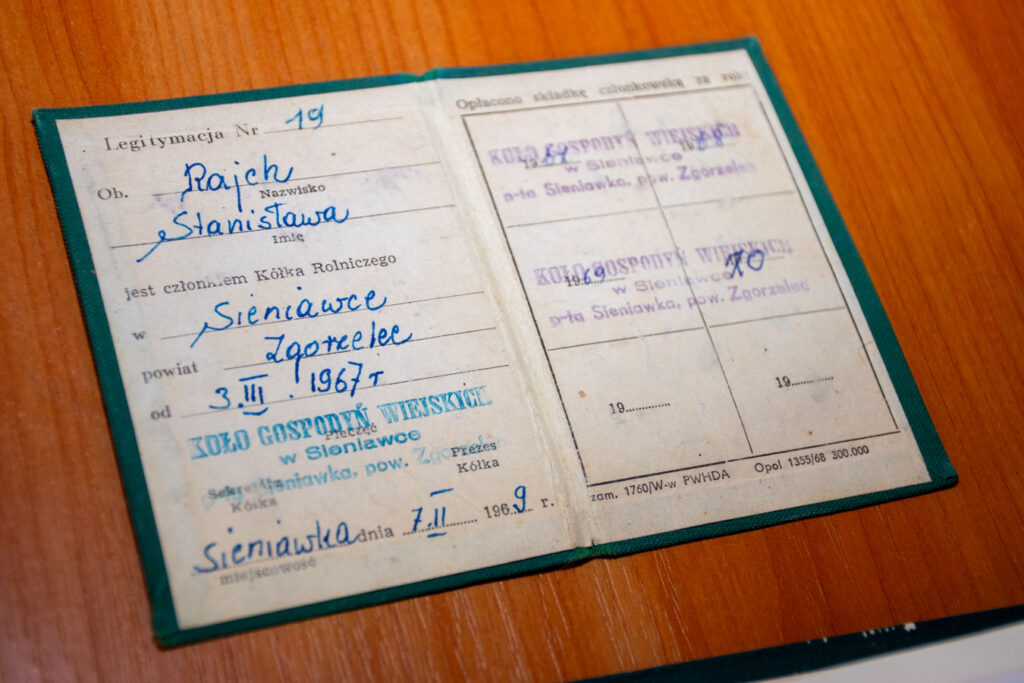 Legitymacja Nr 19
Ob. Rajch
Nazwisko
Stanisława
Imię
jest członkiem Kółka Rolniczego
w Sieniawce
powiat Zgorzelec
od 3.III.1967 r
KOŁO GOSPODYŃ WIEJSKICH
Pieczęć
w Sieniawce
p-ta Sieniawka, pow. Zgorzelec
Sekretarz Prezes
Kółka Kółka
Sieniawka dnia 7.II 1969 r.
miejscowość
Opłacono składkę członkowską za rok:
KOŁO GOSPODYŃ WIEJSKICH
1967 1968
w Sieniawce
p-ta Sieniawka, pow. Zgorzelec
KOŁO GOSPODYŃ WIEJSKICH
1969 70
w Sieniawce
p-ta Sieniawka, pow. Zgorzelec
19........... 19...........
zam. 1760/W-w PWHDA Opol 1355/68 300.000